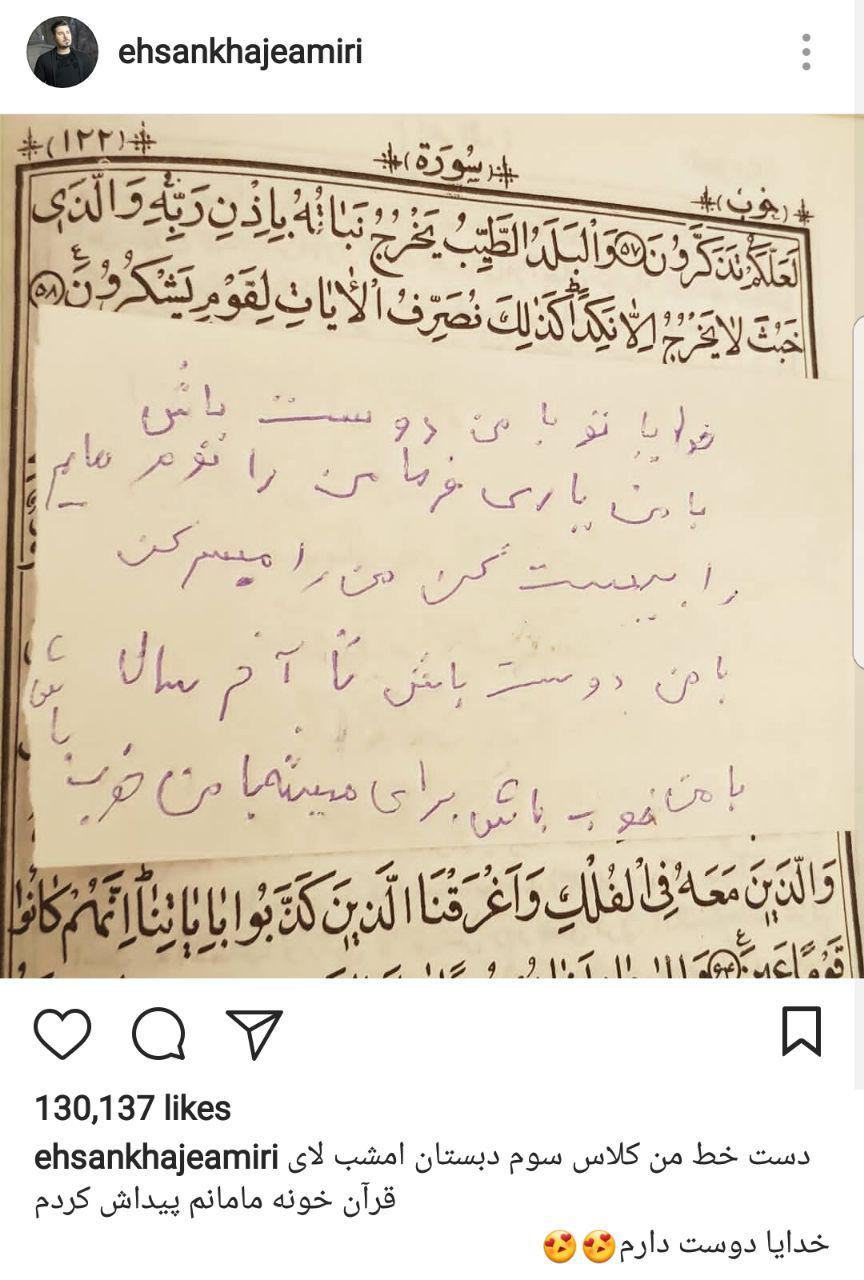 ehsankhajeamiri
(۱۲۲)
(سورة)
(خوب)
لَعَلَّكُمْ تَذَكَّرُونَ ۵۷ وَالْبَلَدُ الطَّيِّبُ يَخْرُجُ نَبَاتُهُ بِاِذْنِ رَبِّهِ وَالَّذى
خَبُثَ لايَخْرُجُ اِلاّ نَكِداً كَذلِكَ نُصَرِّفُ الْاياتِ لِقَوْمٍ يَشْكُرُونَ ۵۸
خدایا تو با من دوست باش
با من یاری فرما من را نوم هایم
را بیست کن من را میسر کن
با من دوست باش تا آخر سال
با من خوب باش برای میشه با من خوب
باش
وَالَّذينَ مَعَهُ فِى الْفُلْكِ وَاَغْرَقْنَا الَّذينَ كَذَّبُوا بِاياتِنا اِنَّهُمْ كانُوا
قَوْماً عَمينَ ۶۴
130,137 likes
ehsankhajeamiri دست خط من کلاس سوم دبستان امشب لای
قرآن خونه مامانم پیداش کردم
خدایا دوست دارم😍😍